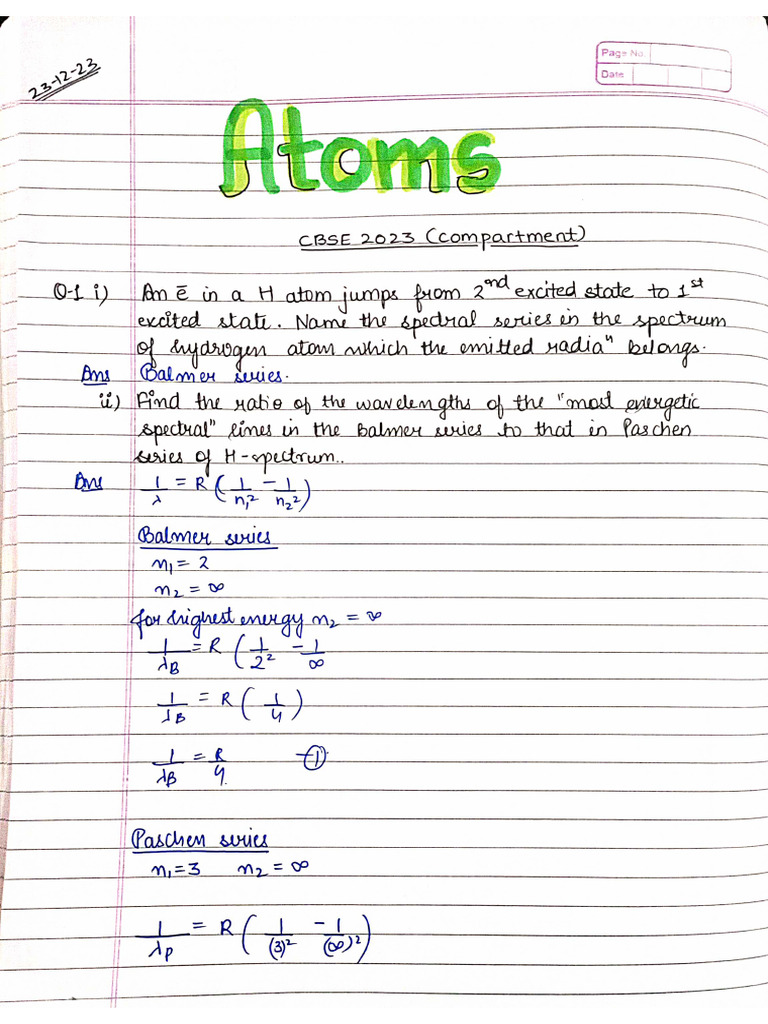 23-12-23
Page No.
Date
Atoms
CBSE 2023 (Compartment)
Q-1 i) An ē in a H atom jumps from 2nd excited state to 1st
excited state. Name the spedral series in the spectrum
of hydrogen atom which the emitted radiaⁿ belongs.
Ans Balmer series.
ii) Find the ratio of the wavelengths of the "most energetic
spectral" lines in the Balmer series to that in Paschen
series of H-spectrum..
Ans 1/λ = R (1/n₁² - 1/n₂²)
Balmer series
n₁ = 2
n₂ = ∞
for highest energy n₂ = ∞
1/λB = R (1/2² - 1/∞
1/λB = R (1/4)
1/λB = R/4. -①
Paschen series
n₁ = 3 n₂ = ∞
1/λP = R (1/(3)² - 1/(∞)²)